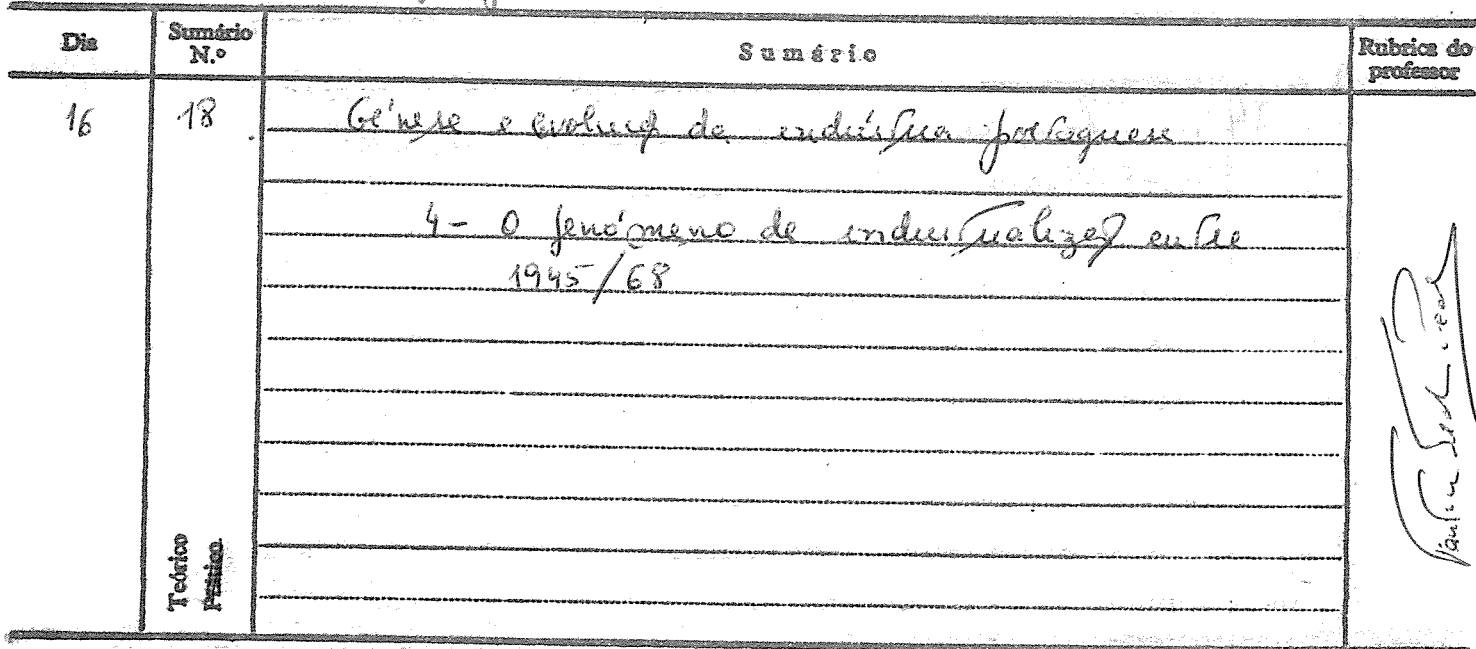 Dia
Sumário N.º
Sumário
Rubrica do professor
16
18
Génese e evoluç da indústria portuguesa
4 - O fenómeno de industrializaç entre
1945/68
Teórico
Prático